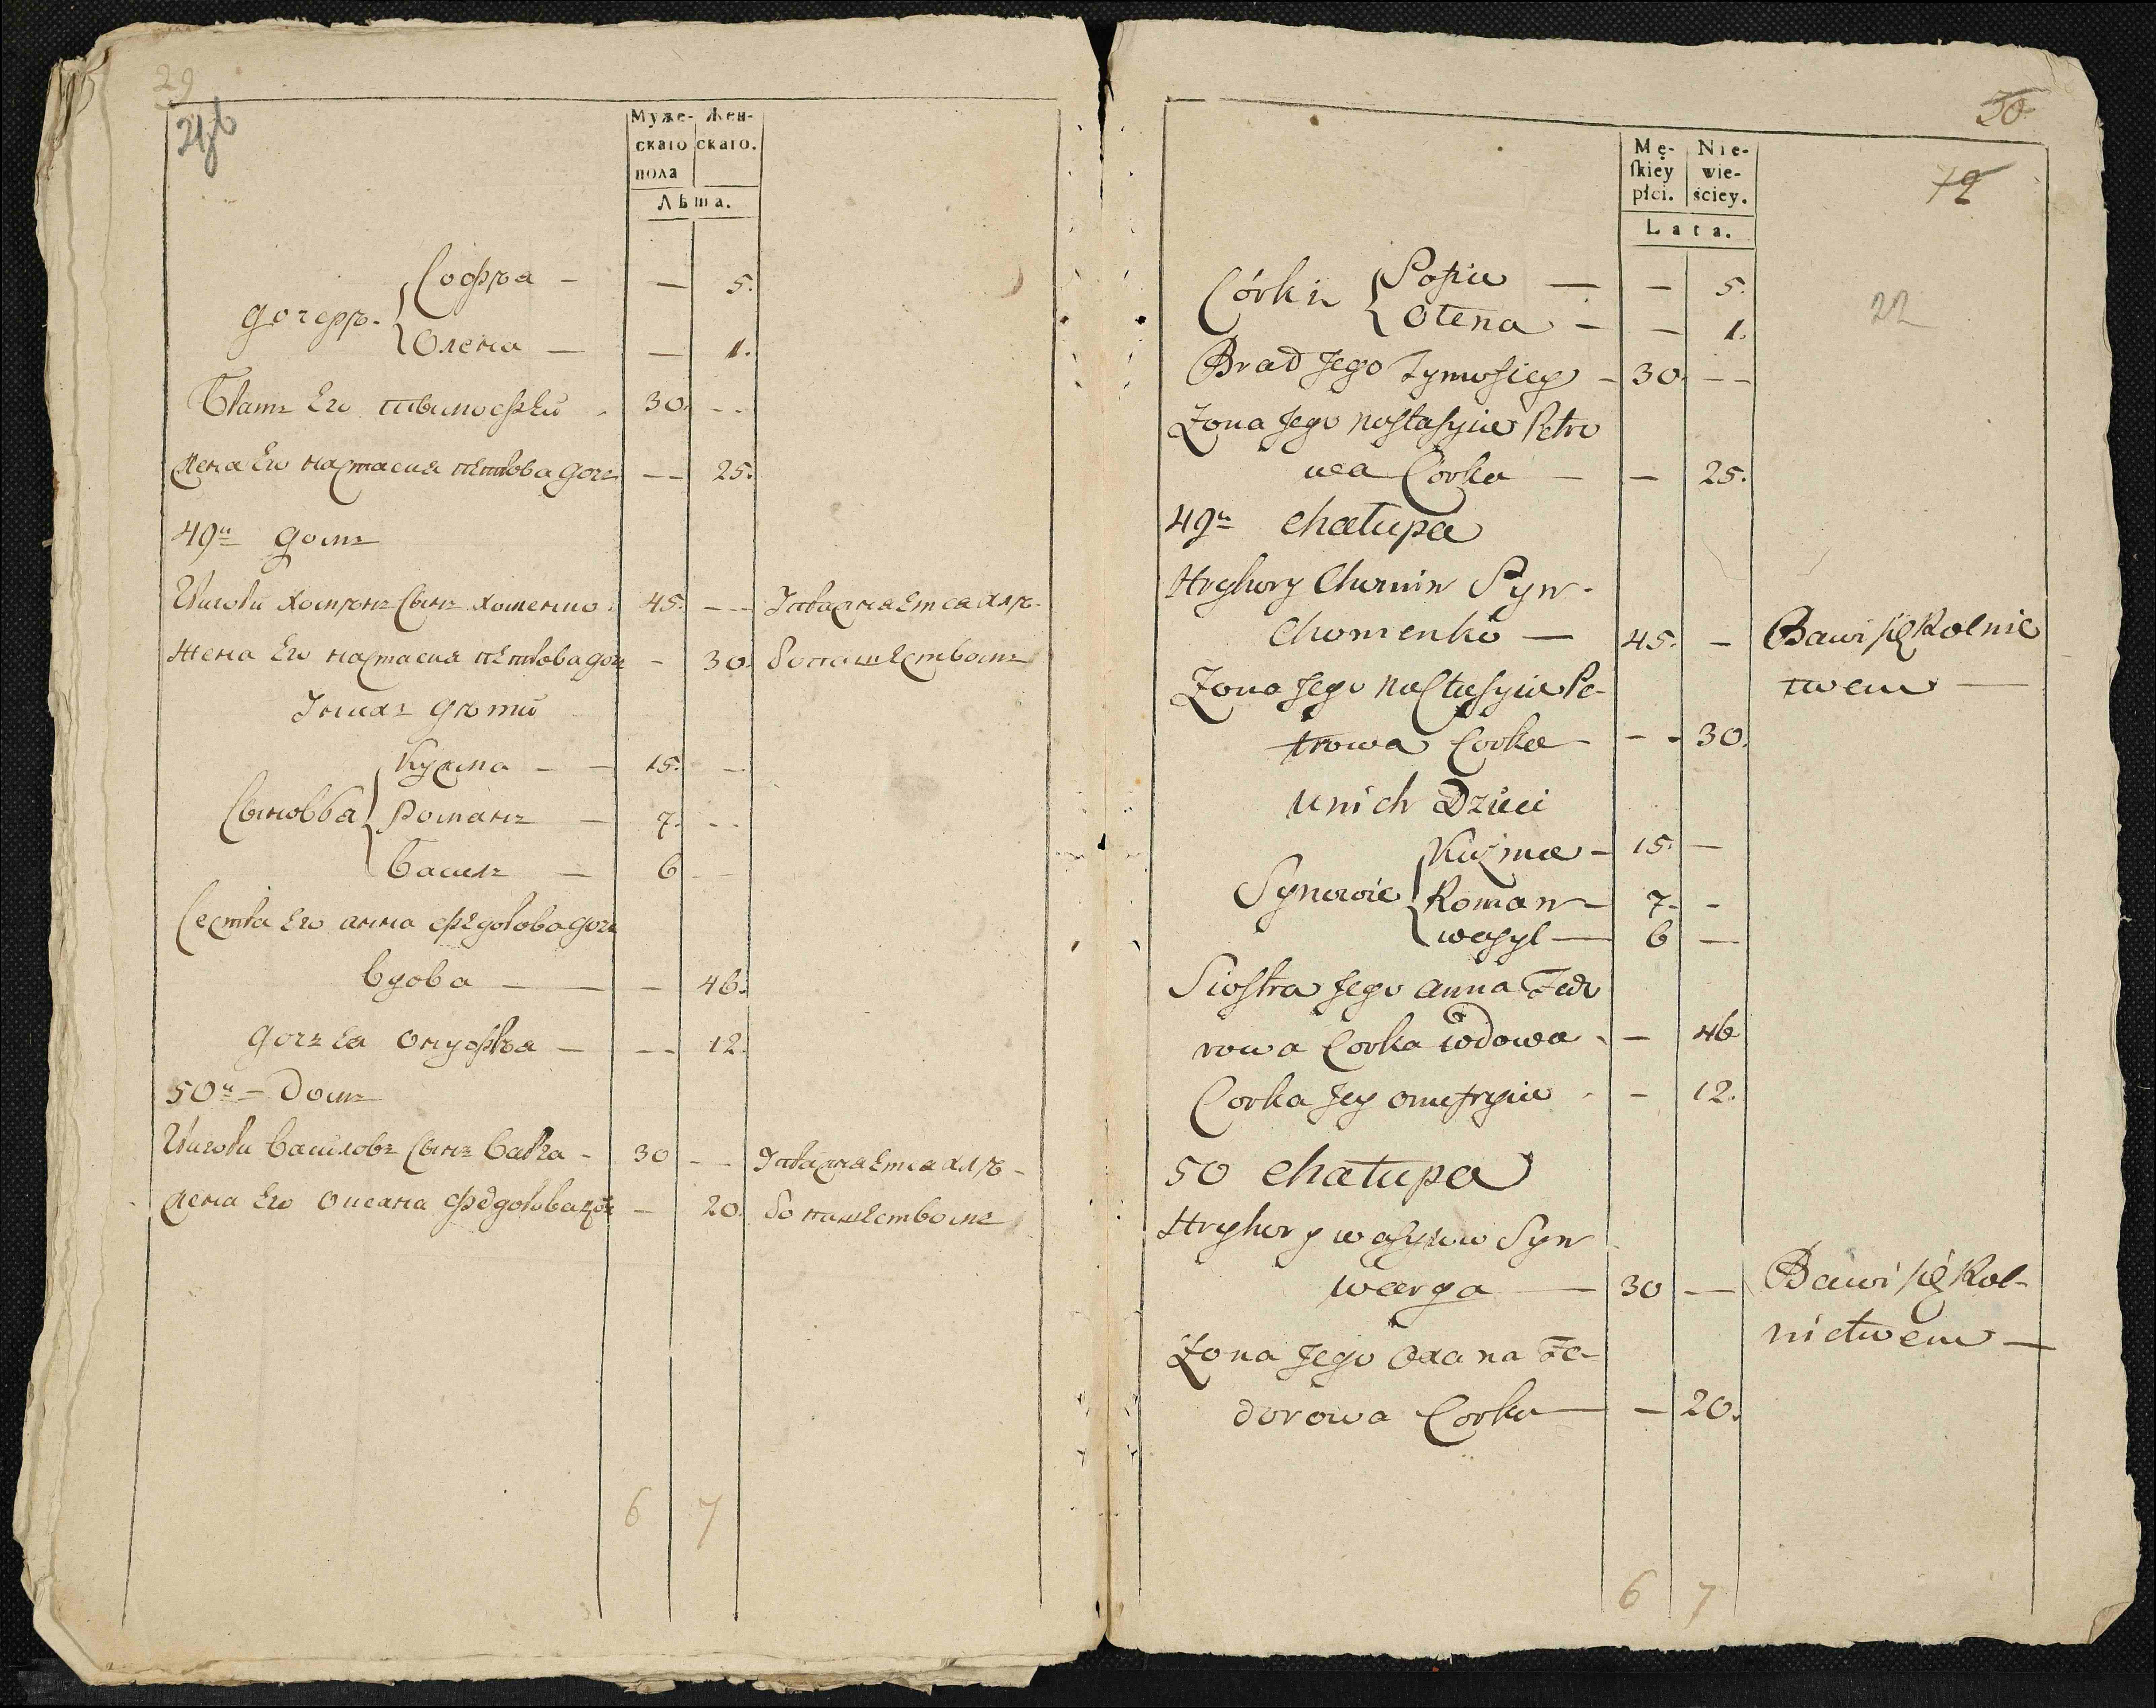 29
21об
Муже- Жен-
скаго скаго.
пола
Лѣта.
Софія — — 5.
дочери
Олена — — 1.
Братъ Его тимофѣй 30. - -
Жена Его настасия петрова доч — 25.
49й домъ
Григори Хоминъ Сынъ Хоменко 45. — Упражняется хлѣ-
Жена Его настасия петрова доч - 30. бопашествомъ
У нихъ дѣти
Кузма — 15. —
Сыновья Романъ — 7. - -
Василь — 6 - -
Сестра Его анна федорова доч
вдова — — 46.
дочь Ея Онуфрія — — 12.
50й — Домъ
Григори Василовъ Сынъ Варга - 30 — Упражняется хлѣ-
Жена Его Оксана федорова доч — 20. бопашествомъ
6 7
50
Mę- Nie-
ſkiey wie-
płci. ściey.
Lata.
72
22
Córki Sofiia — — 5.
Ołena — — 1.
Brad Jego Tymofiey — 30. — —
Zona Jego Nastasyia Petro
wa Corka — — 25.
49u Chałupa
Hryhory Chomin Syn
Chomenko — 45. — Bawi się Rolnic
twem —
Zona Jego Nastasyia Pe-
trowa Corka — — 30.
u nich Dzieci
Kuzma — 15. —
Synowie Roman — 7. -
wasyl — 6 —
Siostra Jego anna Fedo
rowa Corka wdowa — 46
Corka Jey onufryia — 12.
50 Chałupa
Hryhory wasylow Syn
warga — 30 — Bawi się Rol-
nictwem —
Zona Jego Oxana Fe-
dorowa Corka — — 20.
6 7